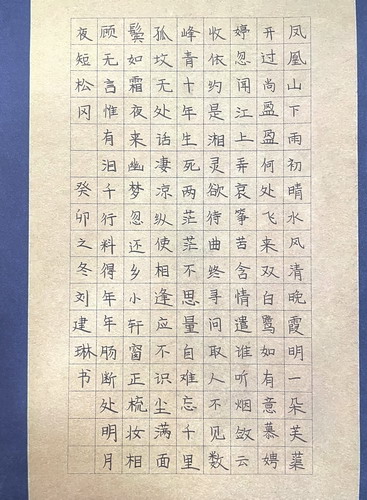 凤凰山下雨初晴水风清晚霞明一朵芙蕖
开过尚盈盈何处飞来双白鹭如有意慕娉
婷忽闻江上弄哀筝苦含情遣谁听烟敛云
收依约是湘灵欲待曲终寻问取人不见数
峰青十年生死两茫茫不思量自难忘千里
孤坟无处话凄凉纵使相逢应不识尘满面
鬓如霜夜来幽梦忽还乡小轩窗正梳妆相
顾无言惟有泪千行料得年年肠断处明月
夜短松冈 癸卯之冬刘建琳书